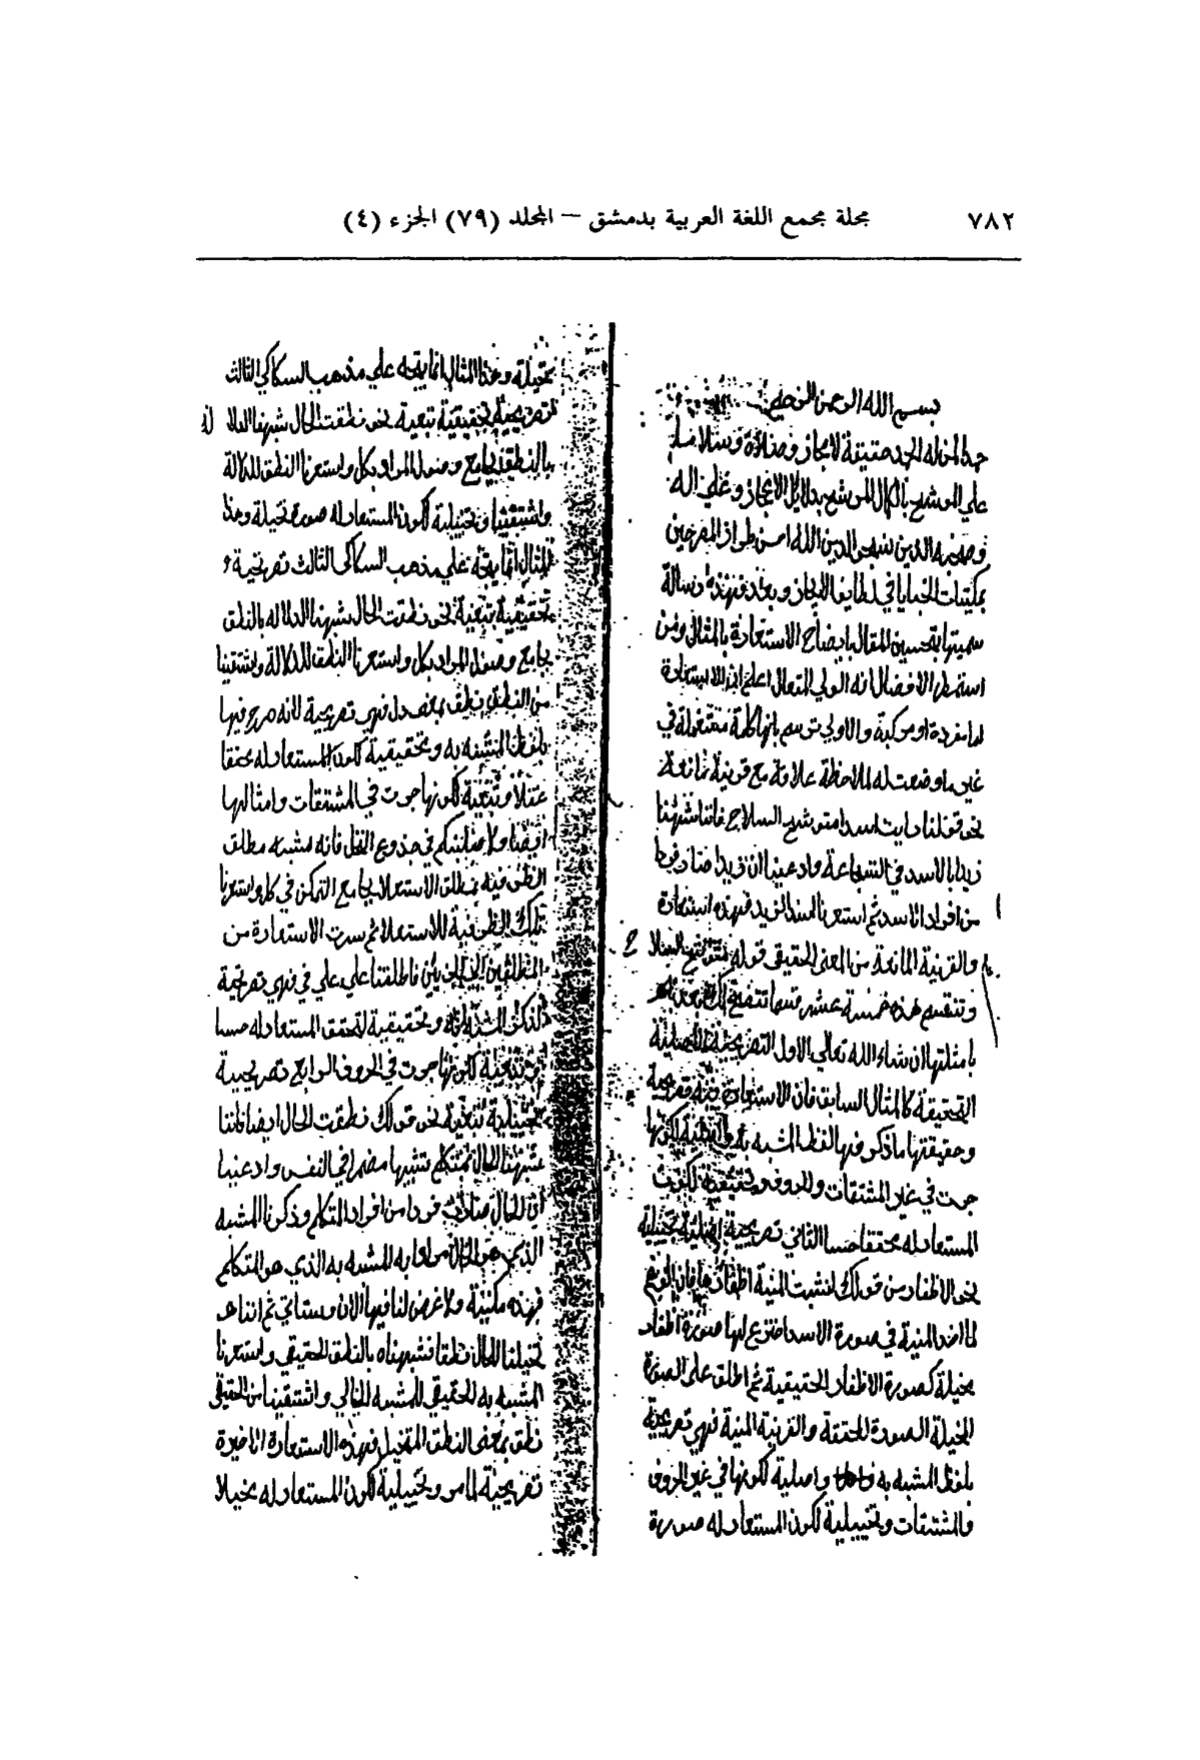 ٧٨٢
مجلة مجمع اللغة العربية بدمشق – المجلد (٧٩) الجزء (٤)
بسم الله الرحمن الرحيم
حقيقة لايجاز وصلاة وسلاما
علي الموشح بالكمال الموشح بدلايل الاعجاز وعلي اله
وصحبه الذين الله احسن طراز
الخبايا في لطايف الايجاز وبعد فهذه رسالة
سميتها تحسين المقال بايضاح الاستعارة بالمثال ومن
الافضال انه الولي المتعال اعلم ان الاستعارة
اما مفردة او مركبة والاولي ترسم بانها كلمة مستعملة في
غير ما وضعت له لملاحظة علاقة مع قرينة مانعة
نحو قولنا رايت اسدا متوشح السلاح فاننا شبهنا
زيدا بالاسد في الشجاعة وادعينا ان زيدا صار فردا
من افراد الاسد ثم استعرنا اسد لزيد فهذه استعارة
والقرينة المانعة من المعني الحقيقي قوله متوشح السلاح
وتنقسم هذه خمسة عشر قسما تتضح لك بعد
بامثلتها ان شاء الله تعالي الاول التصريحية الاصلية
التحقيقية كالمثال السابق فان الاستعارة فيه تصريحية
وحقيقتها ما ذكر فيها لفظ المشبه به واصلية لكونها
جرت في غير المشتقات والحروف وتحقيقية لكون
المستعار له محققا حسا الثاني تصريحية اصلية تخييلية
نحو الاظفار من قولك انشبت المنية اظفارها فان الوهم
لما اخذ المنية في صورة الاسد اخترع لها صورة اظفار
مخيلة كصورة الاظفار الحقيقية ثم اطلق علي الصورة
المخيلة الصورة المحققة والقرينة المنية فهي تصريحية
بلفظ المشبه به واصلية لكونها في غير الحروف
والمشتقات وتخييلية لكون المستعار له صورة
تخيلة وهذا المثال انما يتجه علي مذهب السكاكي الثالث
تصريحية تحقيقية تبعية نحو نطقت الحال شبهنا الدلالة
بالنطق بجامع وصول المراد بكل واستعرنا النطق للدلالة
واشتقينا وتخييلية لكون المستعار له صورة تخيلة وهذا
المثال انما يتجه علي مذهب السكاكي الثالث تصريحية و
تحقيقية تبعية نحو نطقت الحال شبهنا الدلالة بالنطق
بجامع وصول المراد بكل واستعرنا النطق للدلالة واشتقينا
من النطق نطق بمعني دل فهي تصريحية لانه صرح فيها
بلفظ المشبه به وتحقيقية لكون المستعار له محققا
عقلا وتبعية لكونها جرت في المشتقات وامثالها
ايضا ولاصلبنكم في جذوع النخل فانه شبه مطلق
الظرفية بمطلق الاستعلا بجامع التمكن في كل واستعرنا
تلك الظرفية للاستعلا ثم سرت الاستعارة من
المطلقين الي فاطلقنا علي علي في فهي تصريحية
وتحقيقية لتحقق المستعار له حسا
وتبعية لكونها جرت في الحروف الرابع تصريحية
تخييلية تبعية نحو قولك نطقت الحال ايضا فاننا
شبهنا الحال بمتكلم تشبيها مضمرا في النفس وادعينا
ان الحال صارت فردا من افراد المتكلم وذكرنا المشبه
الذي هو الحال مرادا به المشبه به الذي هو المتكلم
فهذه مكنية ولا غرض لنا فيها الان وستاتي ثم اننا هـ
تخيلنا للحال نطقا فشبهناه بالنطق الحقيقي واستعرنا
المشبه به الحقيقي للمشبه الخيالي واشتقينا من الحقيقي
نطق بمعني النطق المتخيل فهذه الاستعارة الاخيرة
تصريحية لما مر وتخييلية لكون المستعار له مخيلا